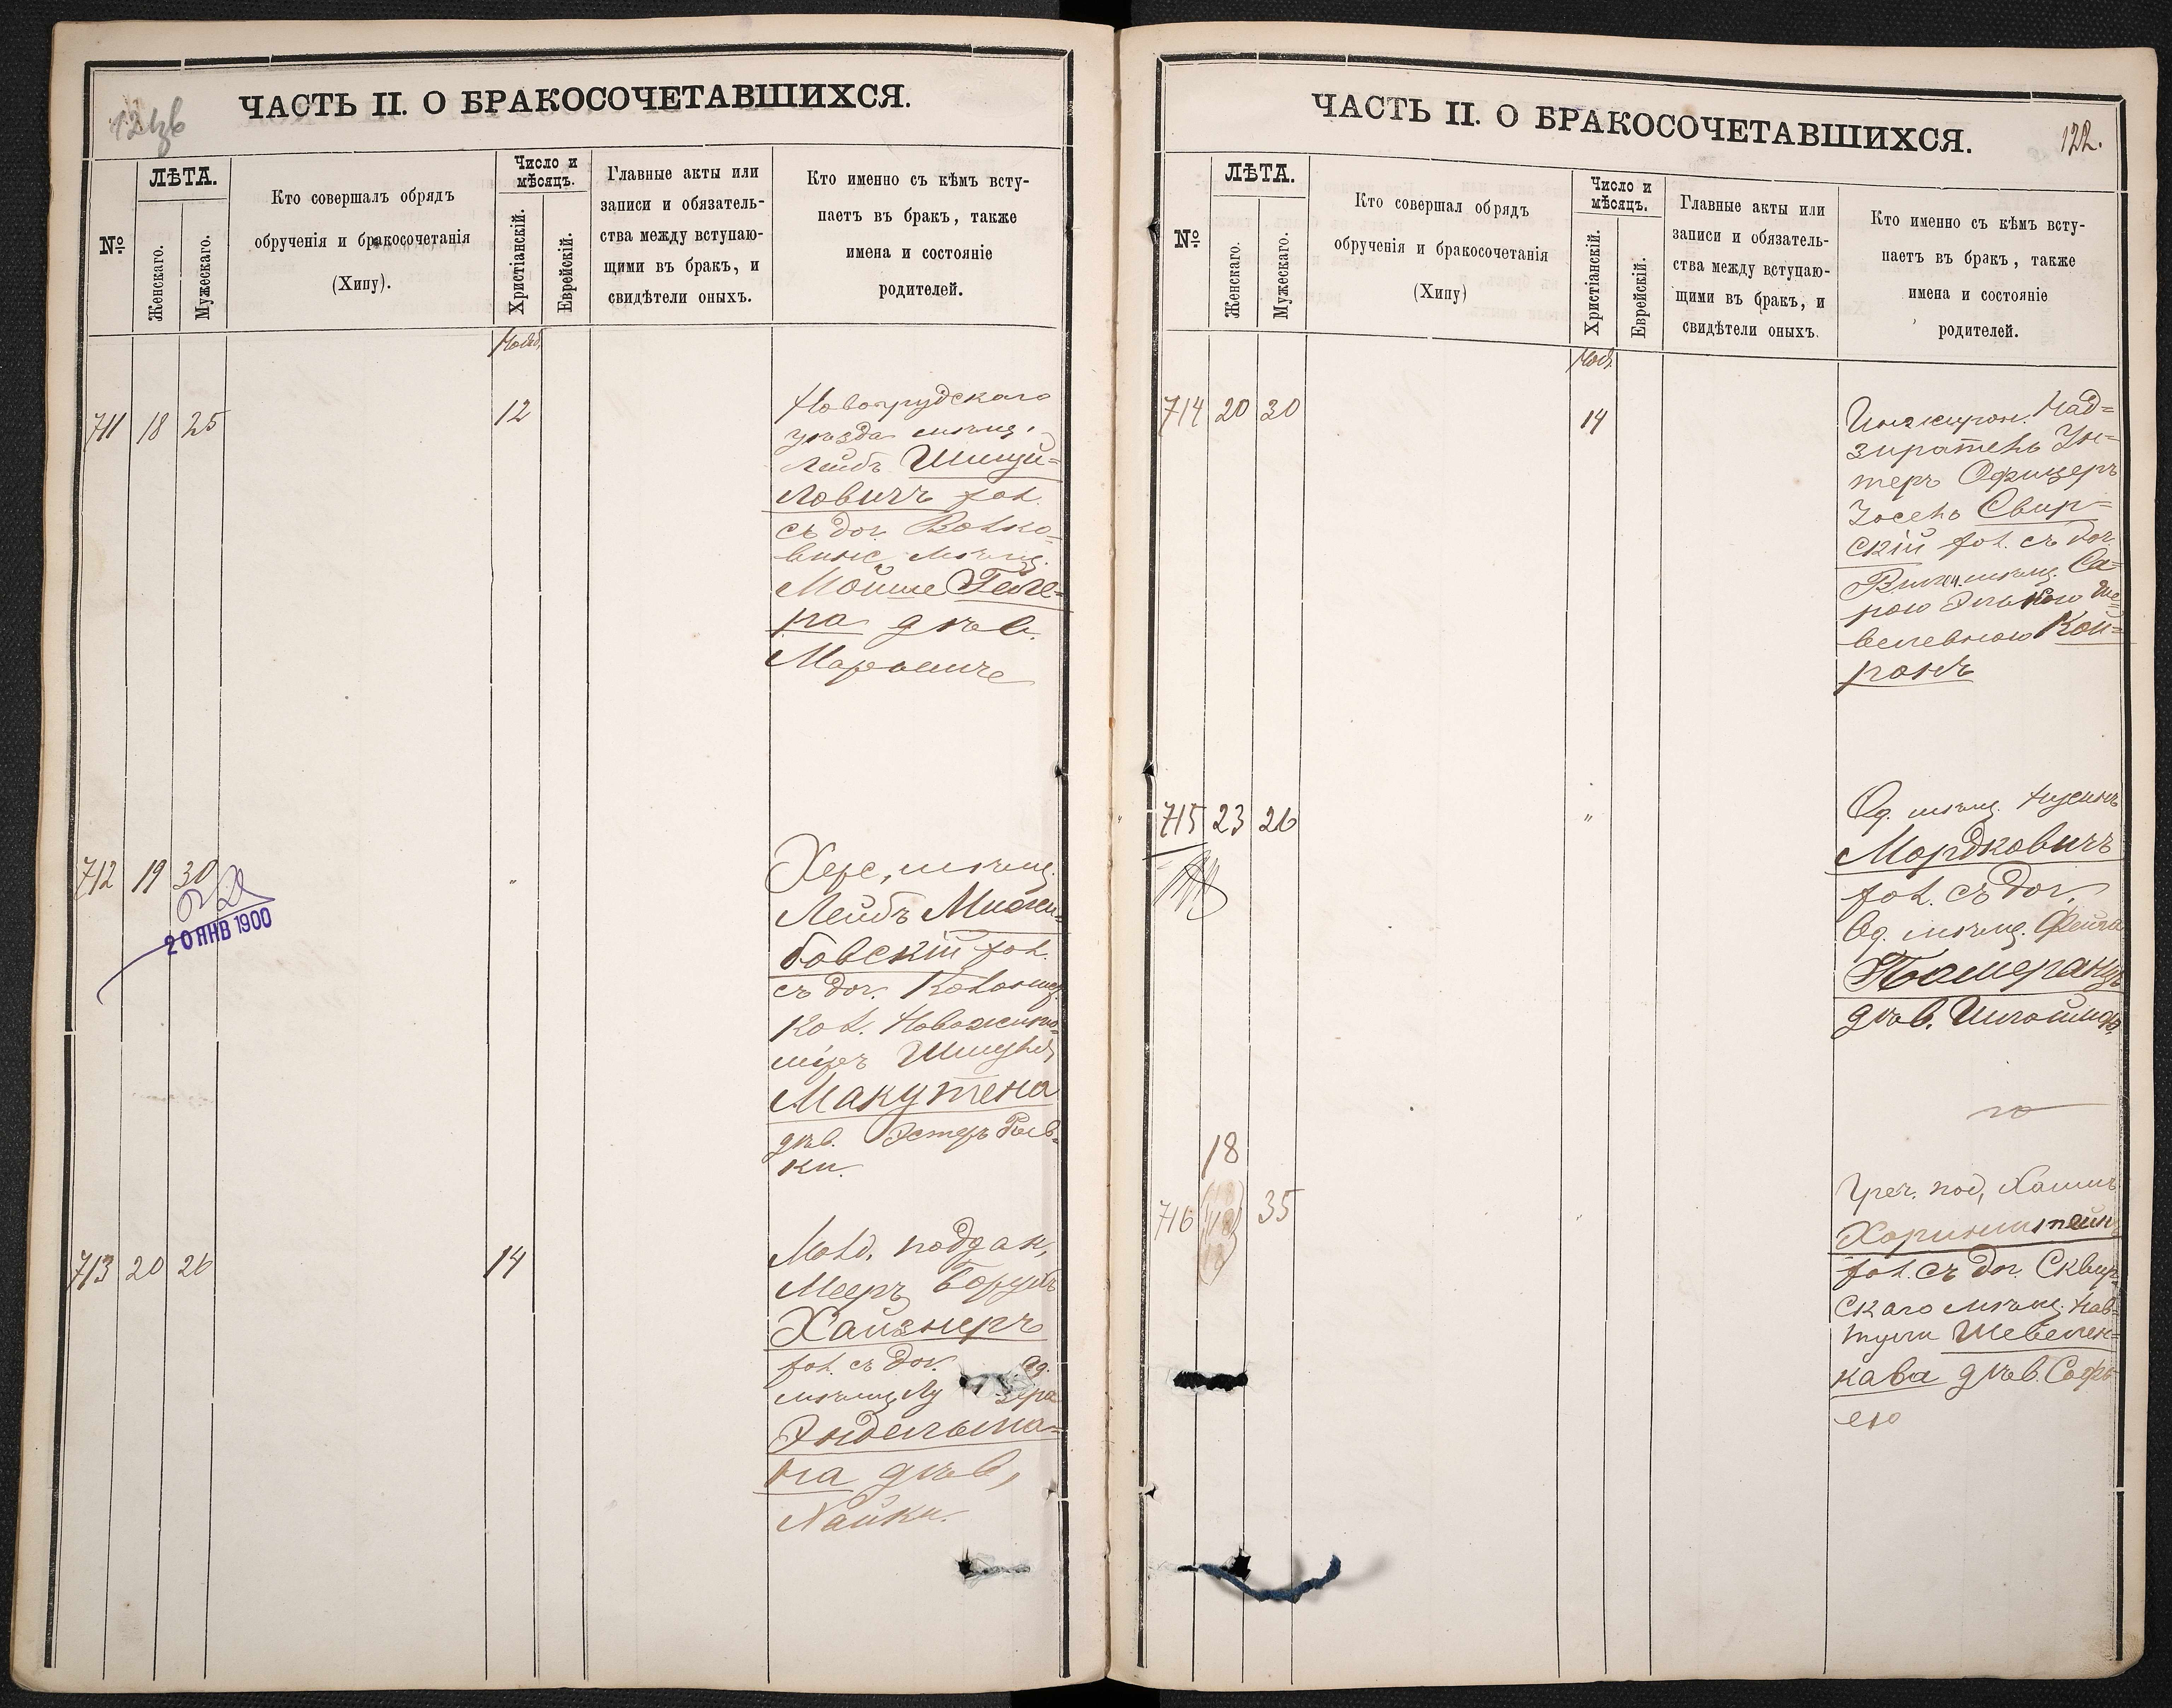 ЧАСТЬ II. О БРАКОСОЧЕТАВШИХСЯ.
№
ЛѢТА.
Женскаго.
Мужескаго.
Кто совершалъ обрядъ
обрученія и бракосочетанія
(Хипу).
Число и
мѣсяцъ.
Христіанскій.
Еврейскій.
Главные акты или
записи и обязатель-
ства между вступаю-
щими въ бракъ, и
свидѣтели оныхъ.
Кто именно съ кѣмъ всту-
паетъ въ бракъ, также
имена и состояніе
родителей.
711 18 25
12
Новогрудскаго
уѣзда мѣщ.
Лейбъ Шмуй=
ловичъ хол.
съ доч.
мѣщ.
Мойше
ра дѣв.
712 19 30
"
20 ЯНВ 1900
Херс, мѣщ.
Лейбъ Межи=
бовскій хол.
съ доч.
кол.
Шмуля
Макутена
дѣв. Эстеръ
ки.
713 20 26
14
Молд. поддан,
Мееръ Борухъ
Хайзнеръ
хол. съ доч. Од.
мѣщ
Эндельма=
на дѣв,
Хайки.
ЧАСТЬ II. О БРАКОСОЧЕТАВШИХСЯ.
122.
№
ЛѢТА.
Женскаго.
Мужескаго.
Кто совершал обрядъ
обрученія и бракосочетанія
(Хипу)
Число и
мѣсяцъ.
Христіанскій.
Еврейскій.
Главные акты или
записи и обязатель-
ства между вступаю-
щими въ бракъ, и
свидѣтели оныхъ.
Кто именно съ кѣмъ всту-
паетъ въ бракъ, также
имена и состояніе
родителей.
714 20 30
14
Над=
зиратель Ун=
теръ Офицеръ
Іосель Свир=
скій хол. съ доч.
мѣщ. Са=
рою
Кой=
ранъ
715 23 26
"
Од. мѣщ. Нусинъ
Мордковичъ
хол. съ доч,
Од. мѣщ. Фейги
Помераньцъ
дѣв.
18
716 35
"
Греч. под, Хаимъ
Хоринштейнъ
хол. съ доч. Сквир
скаго мѣщ. Наф
тули Шевелен=
кава дѣв. Софь
ею